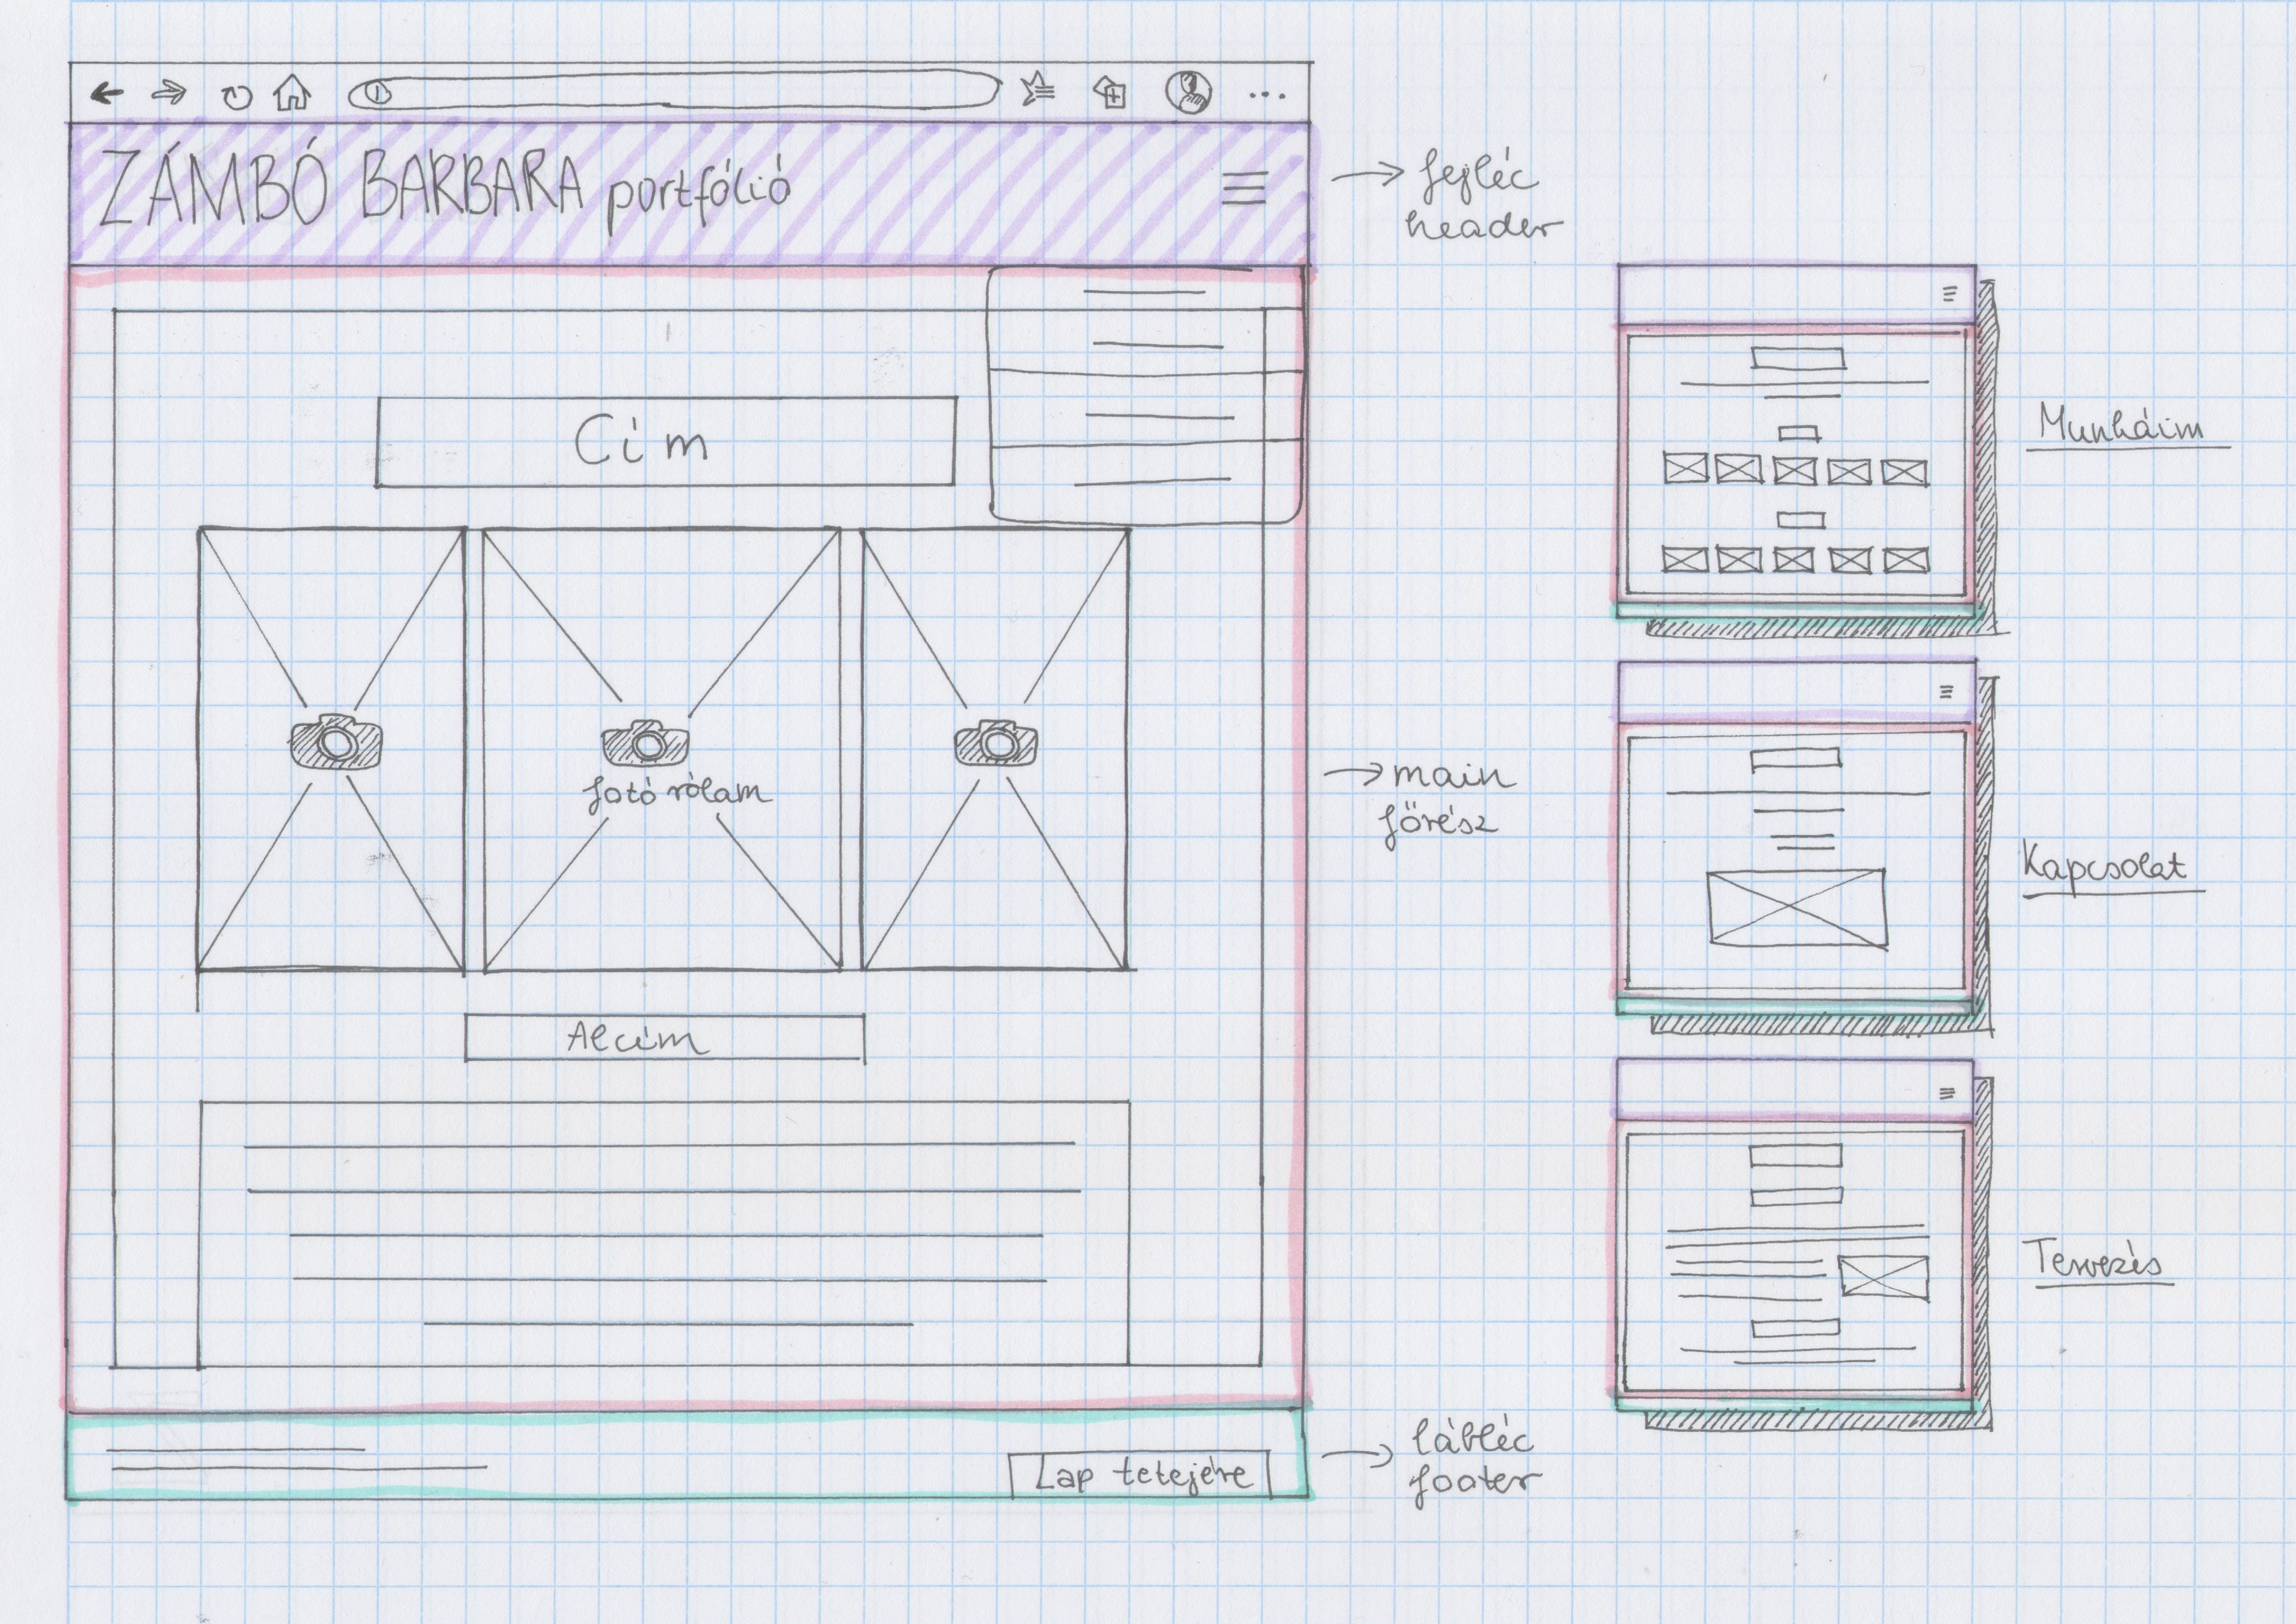 ZÁMBÓ BARBARA portfólió
fejléc
header
Cím
fotó rólam
main
főrész
Alcím
Lap tetejére
lábléc
footer
Munkáim
Kapcsolat
Tervezés